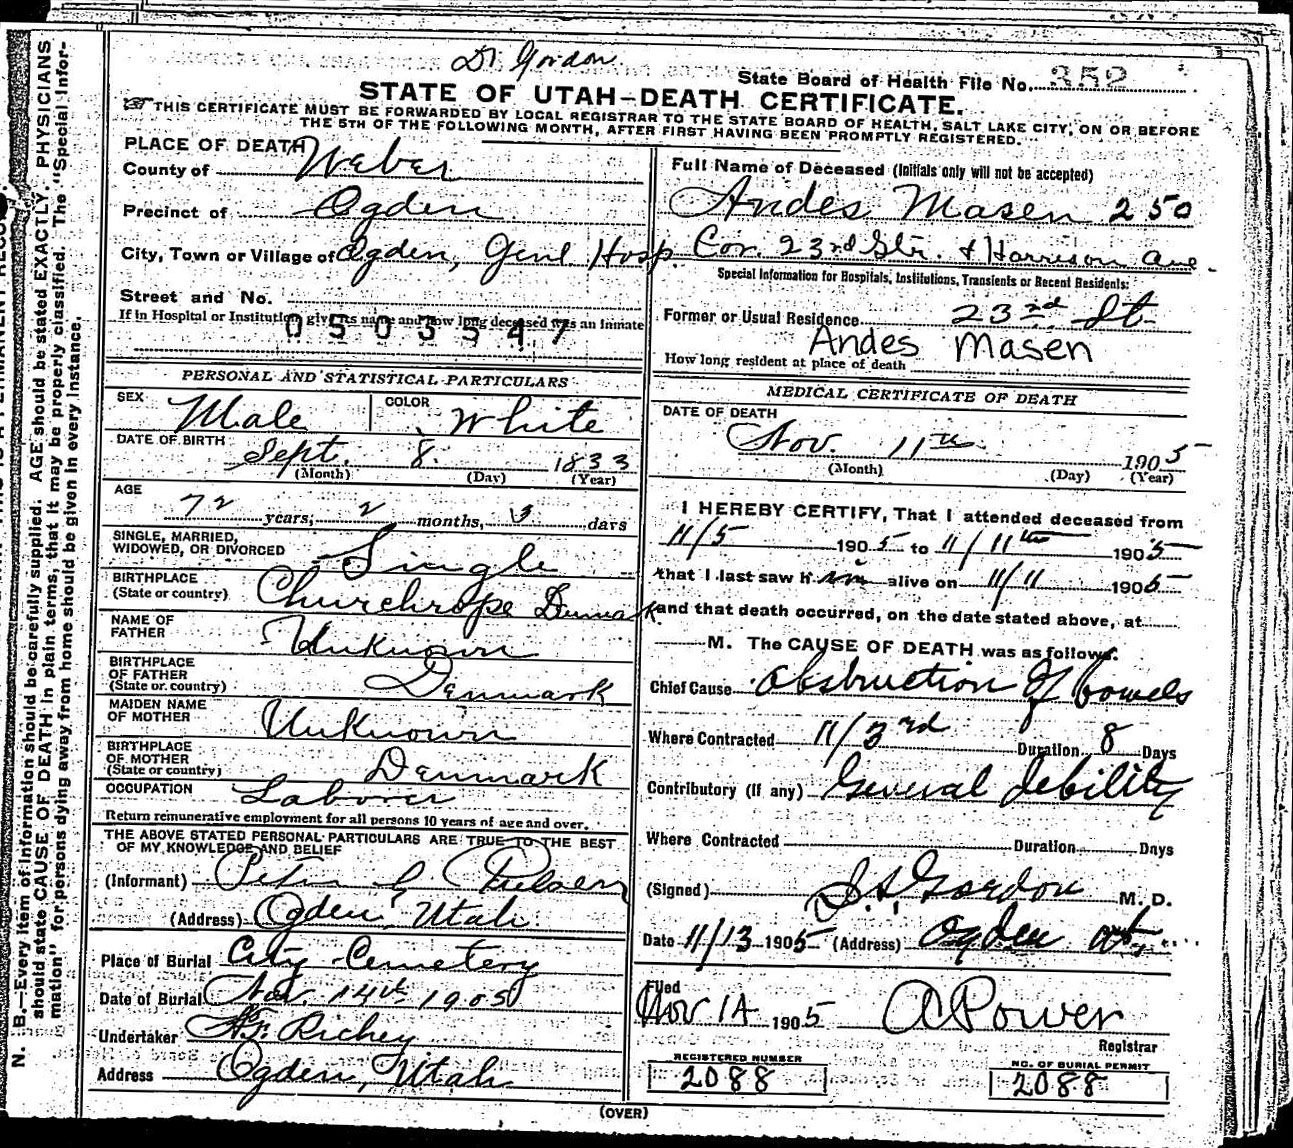 Dr Gordon
State Board of Health File No. 352
STATE OF UTAH—DEATH CERTIFICATE.
THIS CERTIFICATE MUST BE FORWARDED BY LOCAL REGISTRAR TO THE STATE BOARD OF HEALTH, SALT LAKE CITY, ON OR BEFORE
THE 5TH OF THE FOLLOWING MONTH, AFTER FIRST HAVING BEEN PROMPTLY REGISTERED.
N. B.—Every item of information should be carefully supplied. AGE should be stated EXACTLY. PHYSICIANS
should state CAUSE OF DEATH in plain terms, that it may be properly classified. The "Special Infor-
mation" for persons dying away from home should be given in every instance.
PLACE OF DEATH
County of Weber
Precinct of Ogden
City, Town or Village of Ogden, Genl Hosp.
Street and No.
If in Hospital or Institution give its name and how long deceased was an inmate
0503547
PERSONAL AND STATISTICAL PARTICULARS
SEX Male COLOR White
DATE OF BIRTH Sept. 8. 1833
(Month) (Day) (Year)
AGE
72 years, 2 months, 3 days
SINGLE, MARRIED,
WIDOWED, OR DIVORCED Single
BIRTHPLACE
(State or country) Denmark
NAME OF
FATHER Unknown
BIRTHPLACE
OF FATHER
(State or country) Denmark
MAIDEN NAME
OF MOTHER Unknown
BIRTHPLACE
OF MOTHER
(State or country) Denmark
OCCUPATION Laborer
Return remunerative employment for all persons 10 years of age and over.
THE ABOVE STATED PERSONAL PARTICULARS ARE TRUE TO THE BEST
OF MY KNOWLEDGE AND BELIEF
(Informant) Peter
(Address) Ogden, Utah
Place of Burial City Cemetery
Date of Burial Nov. 14th 1905
Undertaker Richey
Address Ogden, Utah
Full Name of Deceased (Initials only will not be accepted)
Andes Masen 250
Cor. 23rd Str. & Harrison Ave.
Special Information for Hospitals, Institutions, Transients or Recent Residents:
Former or Usual Residence 23rd St
Andes Masen
How long resident at place of death
MEDICAL CERTIFICATE OF DEATH
DATE OF DEATH
Nov. 11th 1905
(Month) (Day) (Year)
I HEREBY CERTIFY, That I attended deceased from
11/5 1905 to 11/11th 1905
that I last saw him alive on 11/11 1905
and that death occurred, on the date stated above, at
M. The CAUSE OF DEATH was as follows:
Chief Cause Obstruction of bowels
Where Contracted 11/3rd Duration 8 Days
Contributory (If any) General debility
Where Contracted Duration Days
(Signed) Gordon M. D.
Date 11/13 1905 (Address) Ogden Ut.
Filed
NOV 14 1905 A Power
Registrar
REGISTERED NUMBER
2088
NO. OF BURIAL PERMIT
2088
(OVER)